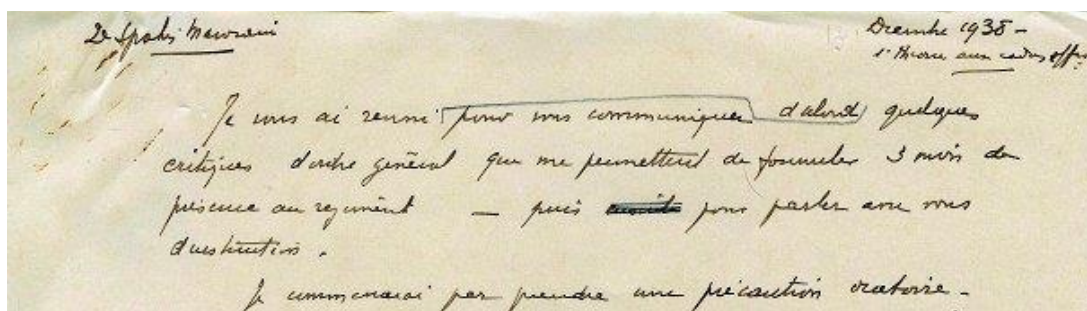 2e Spahis Marocain
Décembre 1938 -
1e Théorie aux cadres offi
Je vous ai réuni pour vous communiquer d'abord quelques
critiques d'ordre général que me permettent de formuler 3 mois de
présence au régiment — puis pour parler avec vous
d'instruction.
Je commencerai par prendre une précaution oratoire -